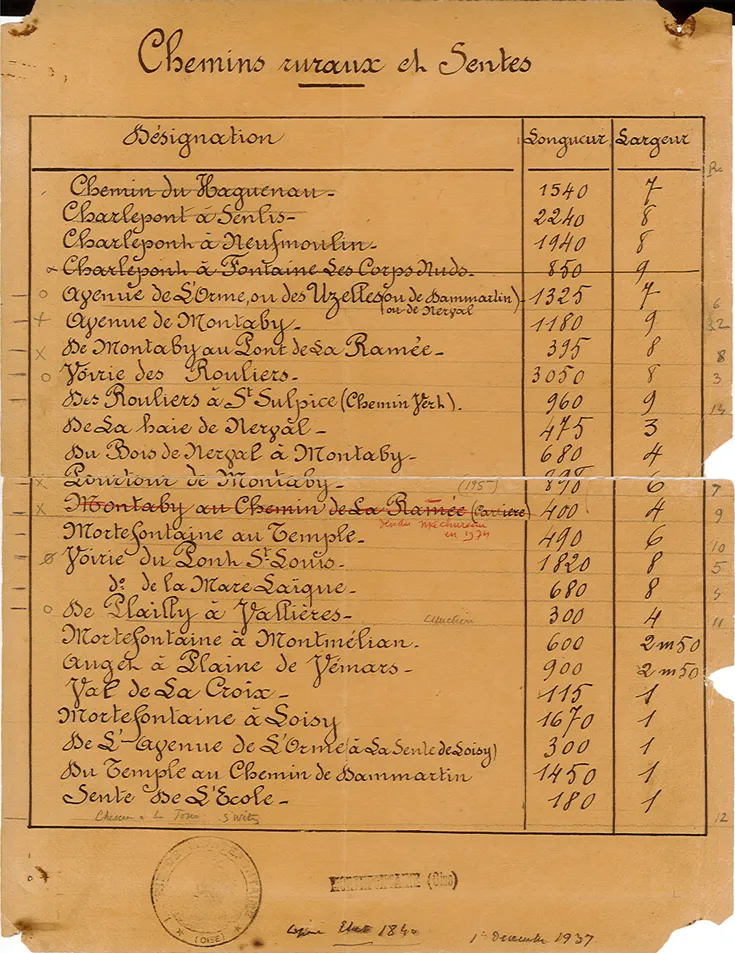 Chemins ruraux et Sentes
Désignation Longueur Largeur
Chemin du Haguenau - 1540 7
Charlepont à Senlis - 2240 8
Charlepont à Neufmoulin - 1940 8
x Charlepont à Fontaine Les Corps Nuds - 850 9
o Avenue de L'Orme, ou des Uzelles (ou de Dammartin) 1325 7 6
(ou de Nerval
+ Avenue de Montaby - 1180 9
x De Montaby au Pont de La Ramée - 395 8 8
o Voirie des Rouliers - 3050 8 3
Des Rouliers à St Sulpice (Chemin Vert). 960 9
De La haie de Nerval - 475 3
Du Bois de Nerval à Montaby - 680 4
x Pourtour de Montaby - (195 ) 890 6 7
x Montaby au Chemin de La Ramée (Cavière) 400 4 9
en 1974
Mortefontaine au Temple - 490 6 10
Voirie du Pont St Louis - 1820 8 5
do de la Mare Laïque - 680 8
o De Plailly à Vallières - 300 4 11
Mortefontaine à Montmélian - 600 2m50
Anget à Plaine de Vémars - 900 2m50
Val de La Croix - 115 1
Mortefontaine à Loisy 1670 1
De L'-avenue de L'Orme (à La Sente de Loisy) 300 1
Du Temple au Chemin de Dammartin 1450 1
Sente De L'Ecole - 180 1
12
(OISE)
MORTEFONTAINE (Oise)
Etat 1840
1er Decembre 1937